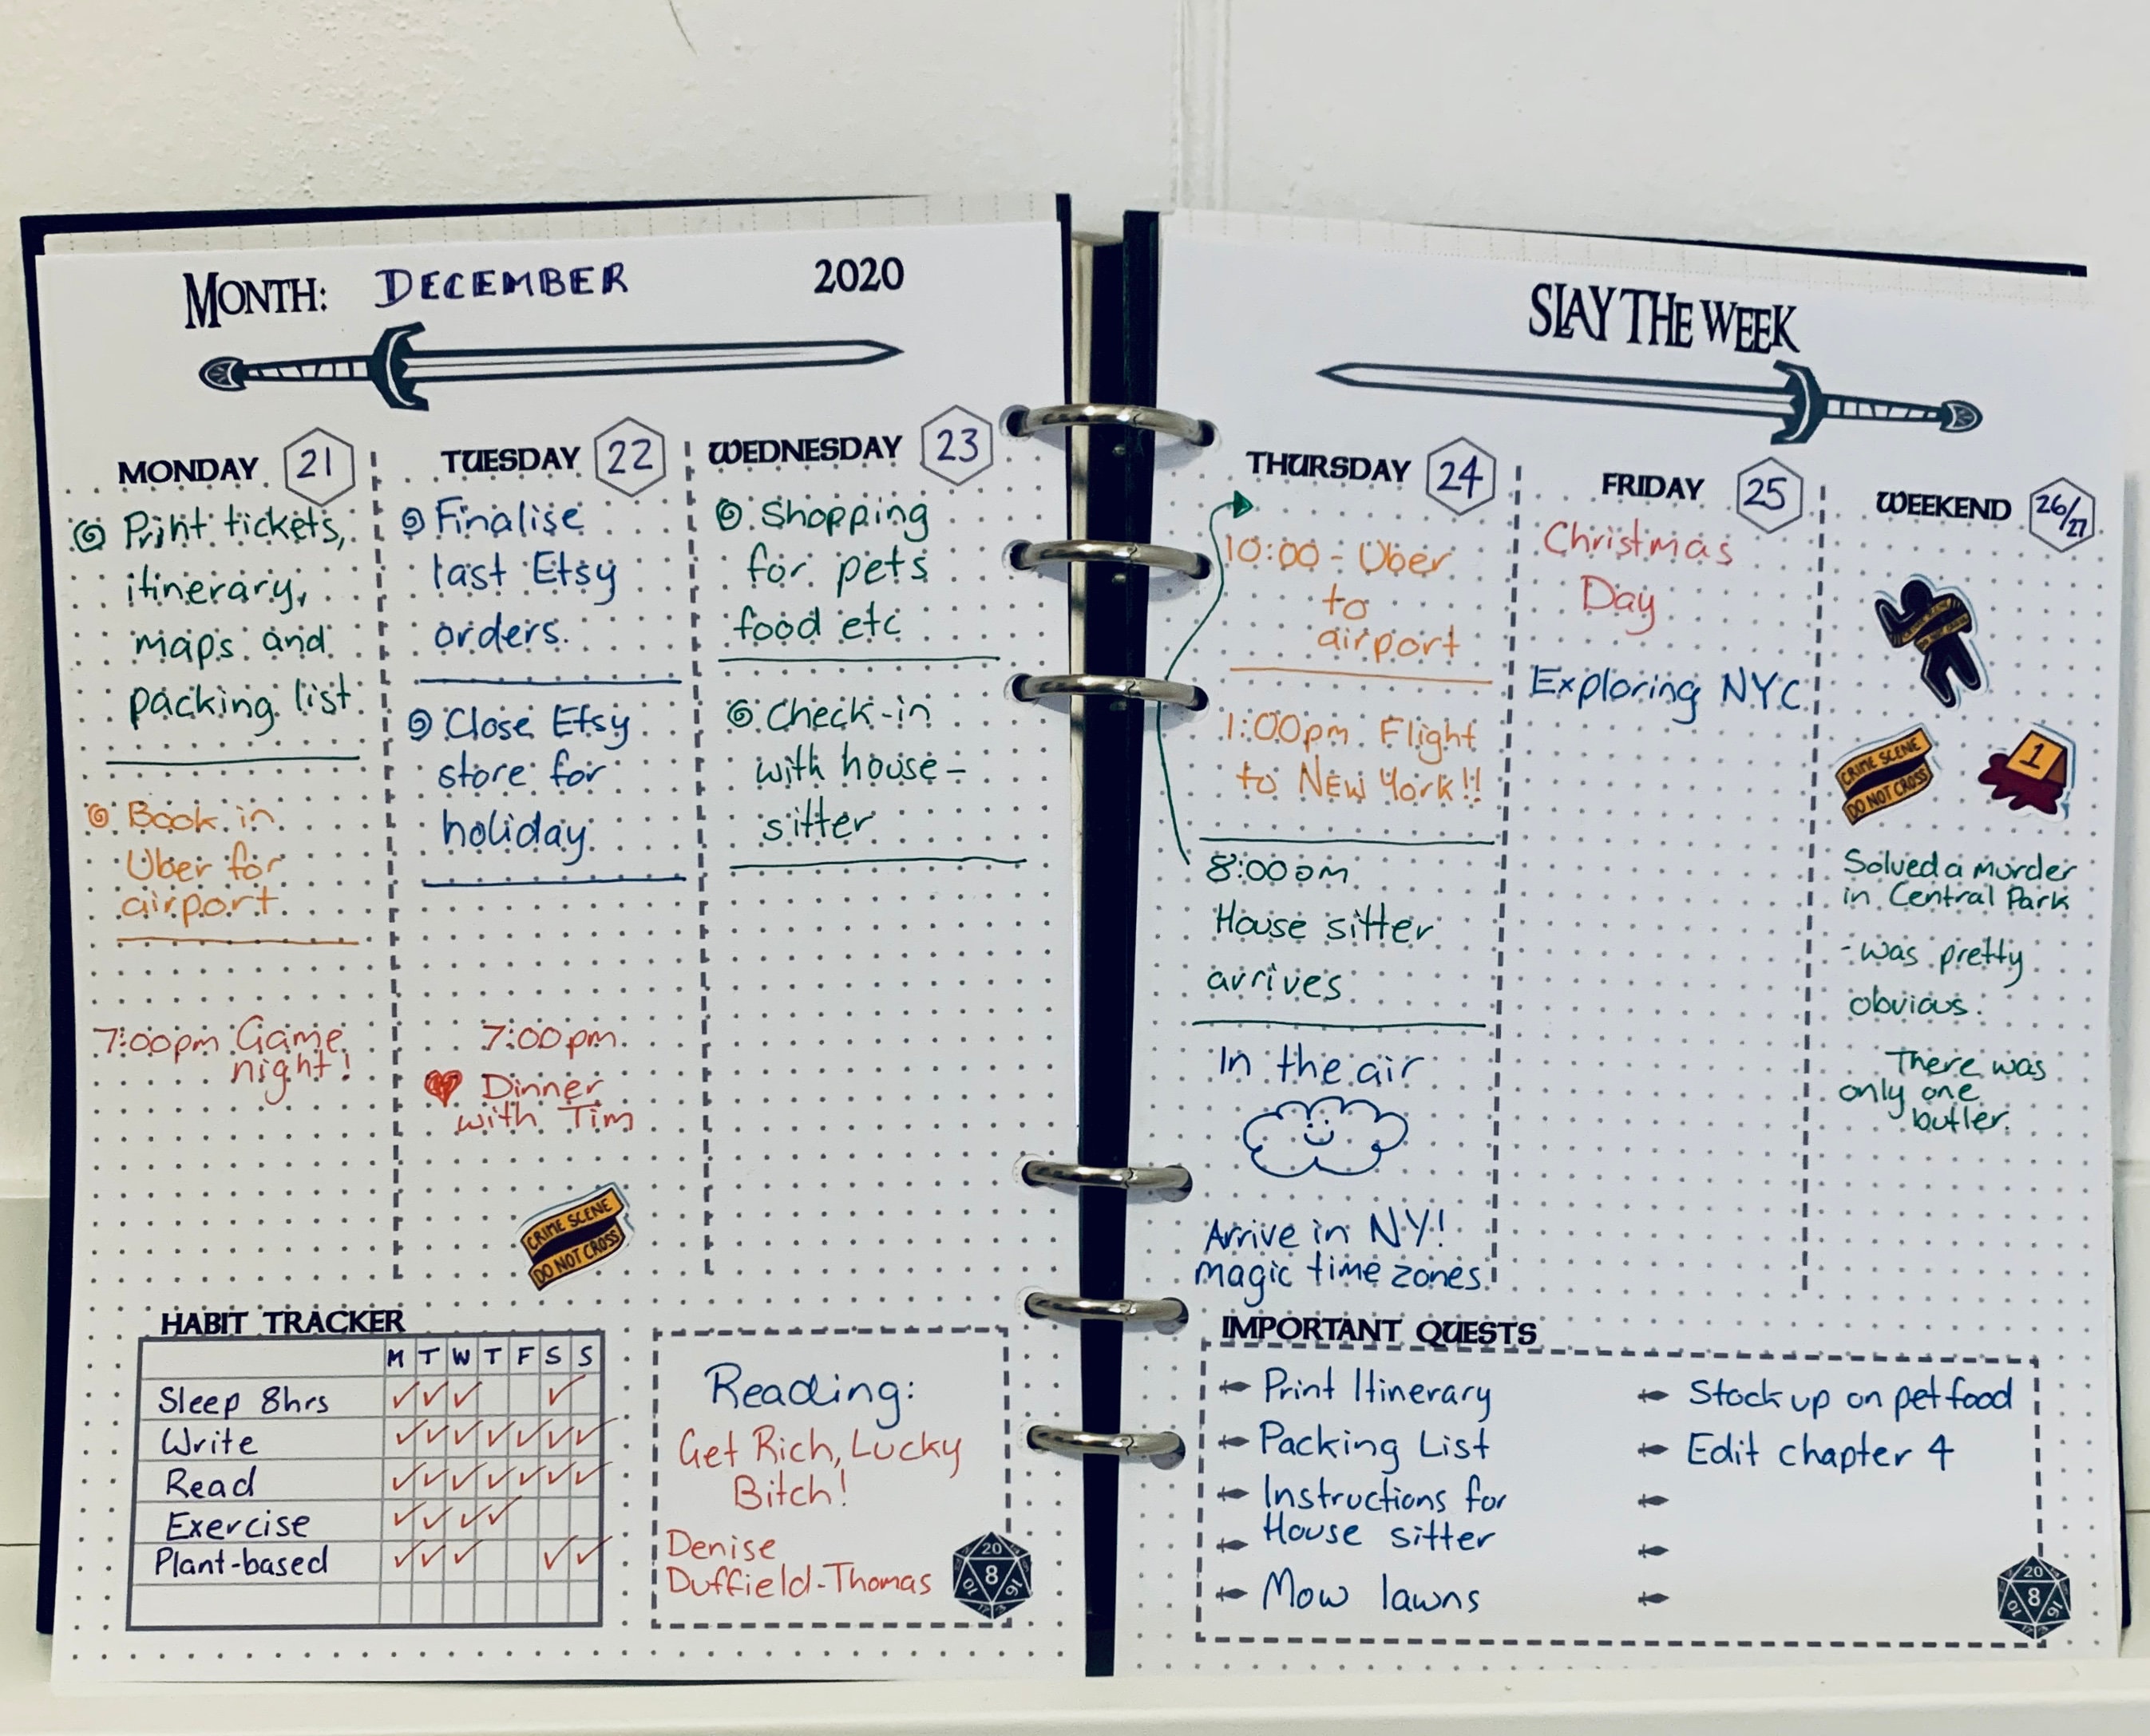 MONTH: DECEMBER 2020
MONDAY 21
Print tickets,
itinerary,
maps and
packing list
Book in
Uber for
airport
7:00pm Game
night!
TUESDAY 22
Finalise
last Etsy
orders.
Close Etsy
store for
holiday
7:00pm
Dinner
with Tim
CRIME SCENE
DO NOT CROSS
WEDNESDAY 23
Shopping
for pets
food etc
Check-in
with house-
sitter
HABIT TRACKER
M T W T F S S
Sleep 8hrs
Write
Read
Exercise
Plant-based
Reading:
Get Rich, Lucky
Bitch!
Denise
Duffield-Thomas
20
8
10
16
SLAY THE WEEK
THURSDAY 24
10:00 - Uber
to
airport
1:00pm Flight
to NEW York!!
8:00am
House sitter
arrives
In the air
Arrive in NY!
magic time zones!
FRIDAY 25
Christmas
Day
Exploring NYC
WEEKEND 26/27
CRIME SCENE
DO NOT CROSS
1
Solved a murder
in Central Park
- was pretty
obvious.
There was
only one
butler.
IMPORTANT QUESTS
Print Itinerary
Packing List
Instructions for
House sitter
Mow lawns
Stock up on pet food
Edit chapter 4
20
8
10
16